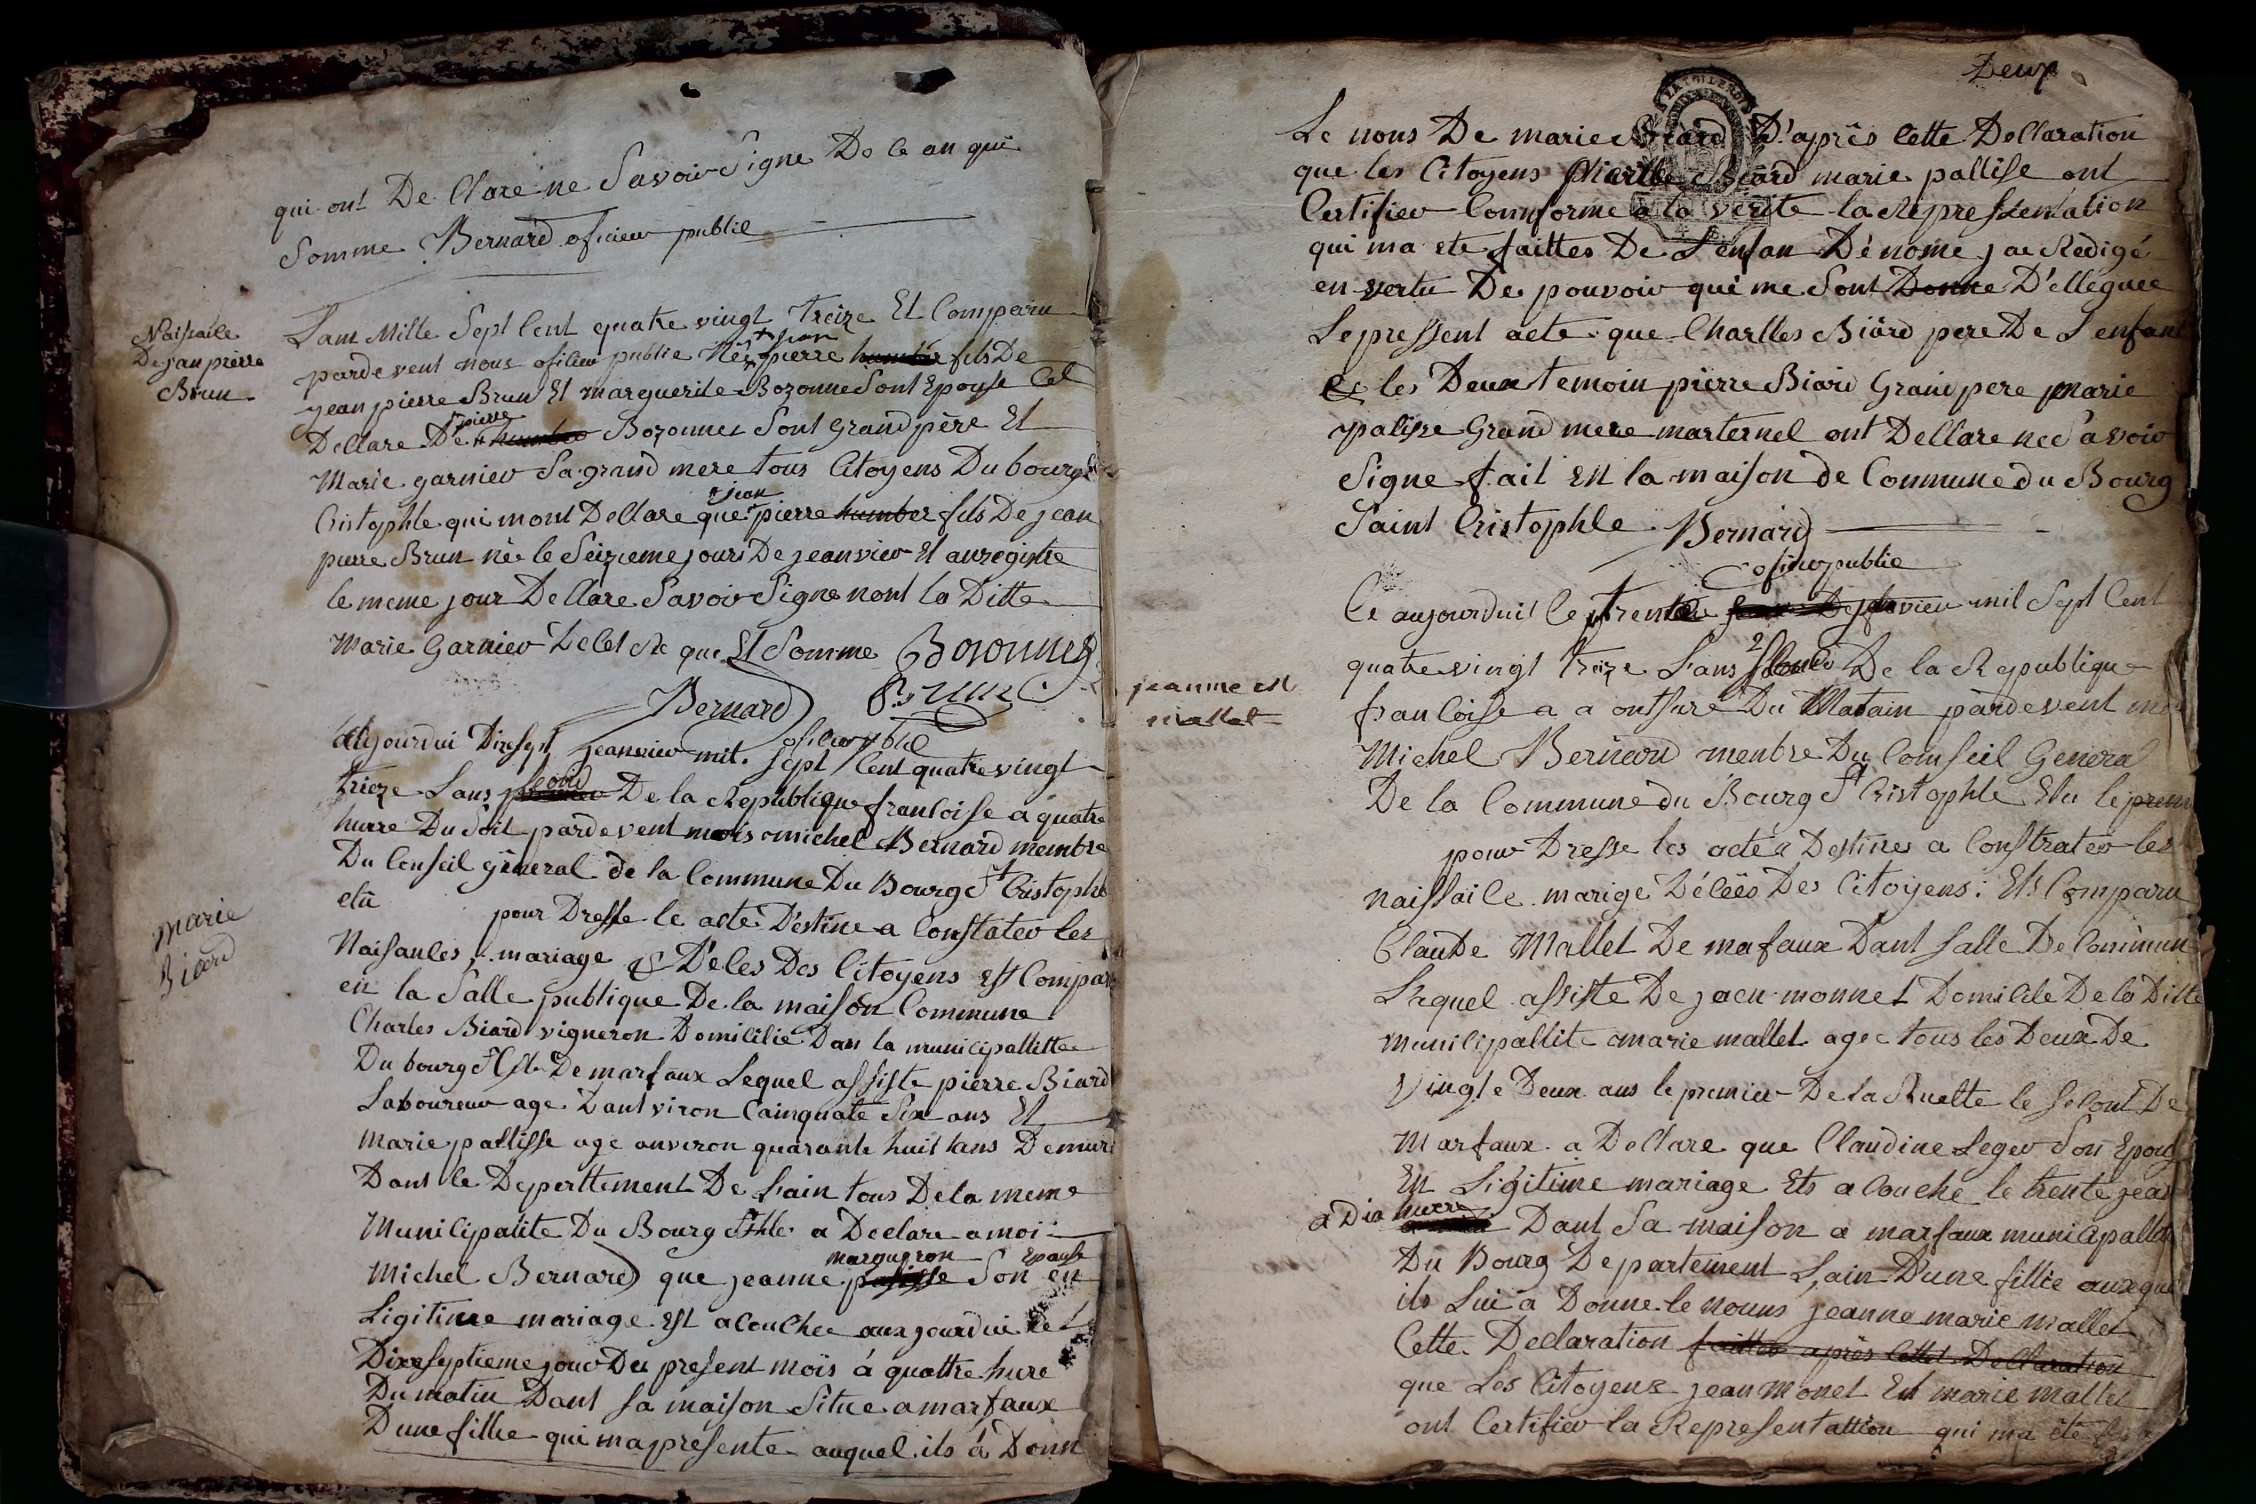 qui ont De Clare ne Savoir Signe De ce an qui
Somme Bernard oficier publie
Naissaile
De jan pierre
Brun
Lant Mille Sept Cent quatre vingt Treize Et Comparu
pardevent nous oficier publie Née + jean pierre humber fils De
jean pierre Brun Et marguerite Bozonne Sont Epouse Cel
Dellare De + pierre humber Bozonnet Sont grand père Et
Marie garnier Sa grand mere tous Citoyens Du bourg St
Cristophle qui mont Dellare que + jean pierre humber fils De jean
pierre Brun née le Seizieme jours De jeanvier Et anregistre
le meme jour Dellare Savoir Signe nont la Ditte
Marie Garnier De Cel Re que Et Somme Bozonnet
Bernard Brun
oficier publie
Aujourdui Dixsept jeanvier mil Sept Cent quatre vingt
trieze Lans second De la Republique francoise a quatre
hurre Du Soit pardevent mois michel Bernard membre
Du Conseil géneral de la Commune Du Bourg St Cristophle
elû pour Dresse le acte Destine a Constater les
Naisanles, mariage & Déles Des Citoyens Est Compar
marie
Biard
en la Salle publique De la maison Commune
Charles Biard vigneron Domicilié Dan la municipallitte
Du bourg St De marfaux Lequel assiste pierre Biard
Laboureur age Dant viron Cainquate Six ans Et
Marie pallisse age anviron quarante huit tans Demure
Dant le Deperttement De Lain tous De la meme
Municipalite Du Bourg Sthle a Declare a moi
Michel Bernard que jeanne marguyron palisse Son Epouse en
Ligitime mariage Est acouchee aux jourdui Le
Dixseptieme jour Du present mois á quattre hure
Du matin Dant sa maison Situe a marfaux
Dune fillie qui ma presente auquel ils á Donn
Deux
Le nous De marie Biard D'aprês Cette Dellaration
que les Citoyens Charlle Biard marie pallise ont
Certifier Comforme a la verite la Repressentation
qui ma ete faittes De L'enfan Dénomé jae Redigé
en vertu De pouvoir qui me Sont Donne D'elleguee
Le pressent acte que Charlles Biard pere De L'enfant
& les Deux temoin pierre Biard Grand pere marie
palisse Grand mere marternel ont Dellare nee Savoir
Signe fait En la maison de Commune du Bourg
Saint Cristophle Bernard
oficier publie
Ce aujourduit le trente janvier mil Sept Cent
jeanne est
mallet
quatre vingt treize Lans 2 De la Republique
francoise a a onthure Du Matain pardevent moi
Michel Bernard menbre Du Comseil General
De la Commune du Bourg St Cristophle Elu le prem
pour Dresse les acte Destines a Constrater les
naissaile marige Délées Des Citoyens: Et Comparu
Claude Mallet De mafaux Dant salle De Commun
Lequel assiste De jaen monnet Domicile De la Ditte
municipallite marie mallet agee tous les Deux De
vingte Deux ans le premier De la Ruette le Second De
Marfaux a Dellare que Claudine Leger Son Epous
En Ligitime mariage Ets a Couche le trente jean
a Dix hurre Dant Sa maison a marfaux municipallit
Du Bourg Departement Lain Dune fillie auxquel
ils Lui a Donne le nouns jeanne marie mallet
Cette Declaration faitter aprês Cettet Dellaration
que Les Citoyens jean Monet Et marie mallet
ont Certifier la Representattion qui ma été